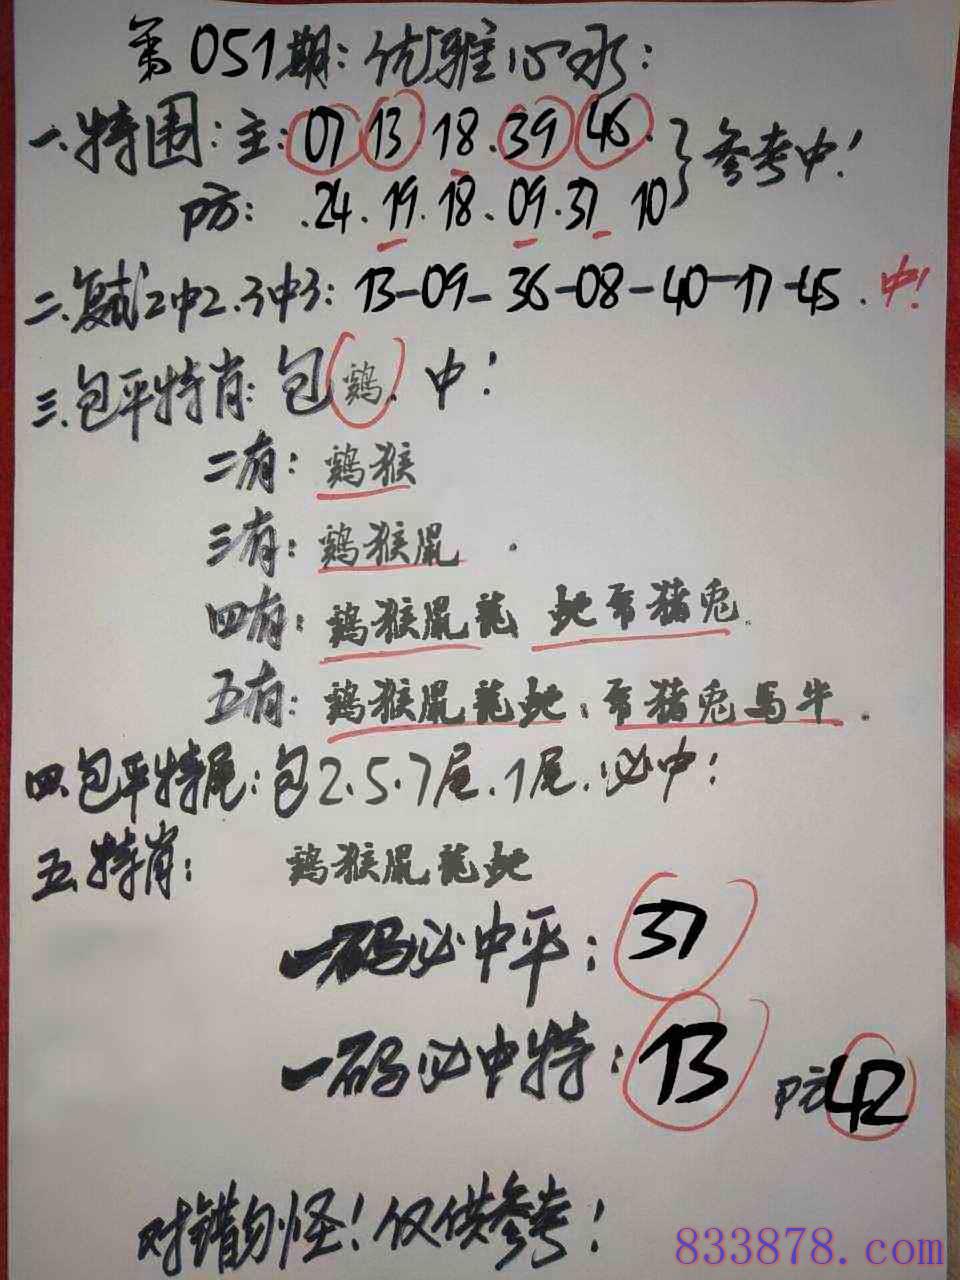 第051期:优雅心水:
一.特围:主:07 13.18.39 46.
防:.24.19.18.09.37 10
参考中!
二.复试2中2.3中3:13-09-36-08-40-17-45.中!
三.包平特肖:包鸡.中!
二有:鸡猴
三有:鸡猴鼠.
四有:鸡猴鼠龍 蛇 猪兔.
五有:鸡猴鼠龍蛇: 猪兔马牛.
四.包平特尾:包2.5.7尾.1尾.必中!
五.特肖: 鸡猴鼠龍蛇
一码必中平:37
一码必中特:13 防42
对错勿怪!仅供参考!
833878.com